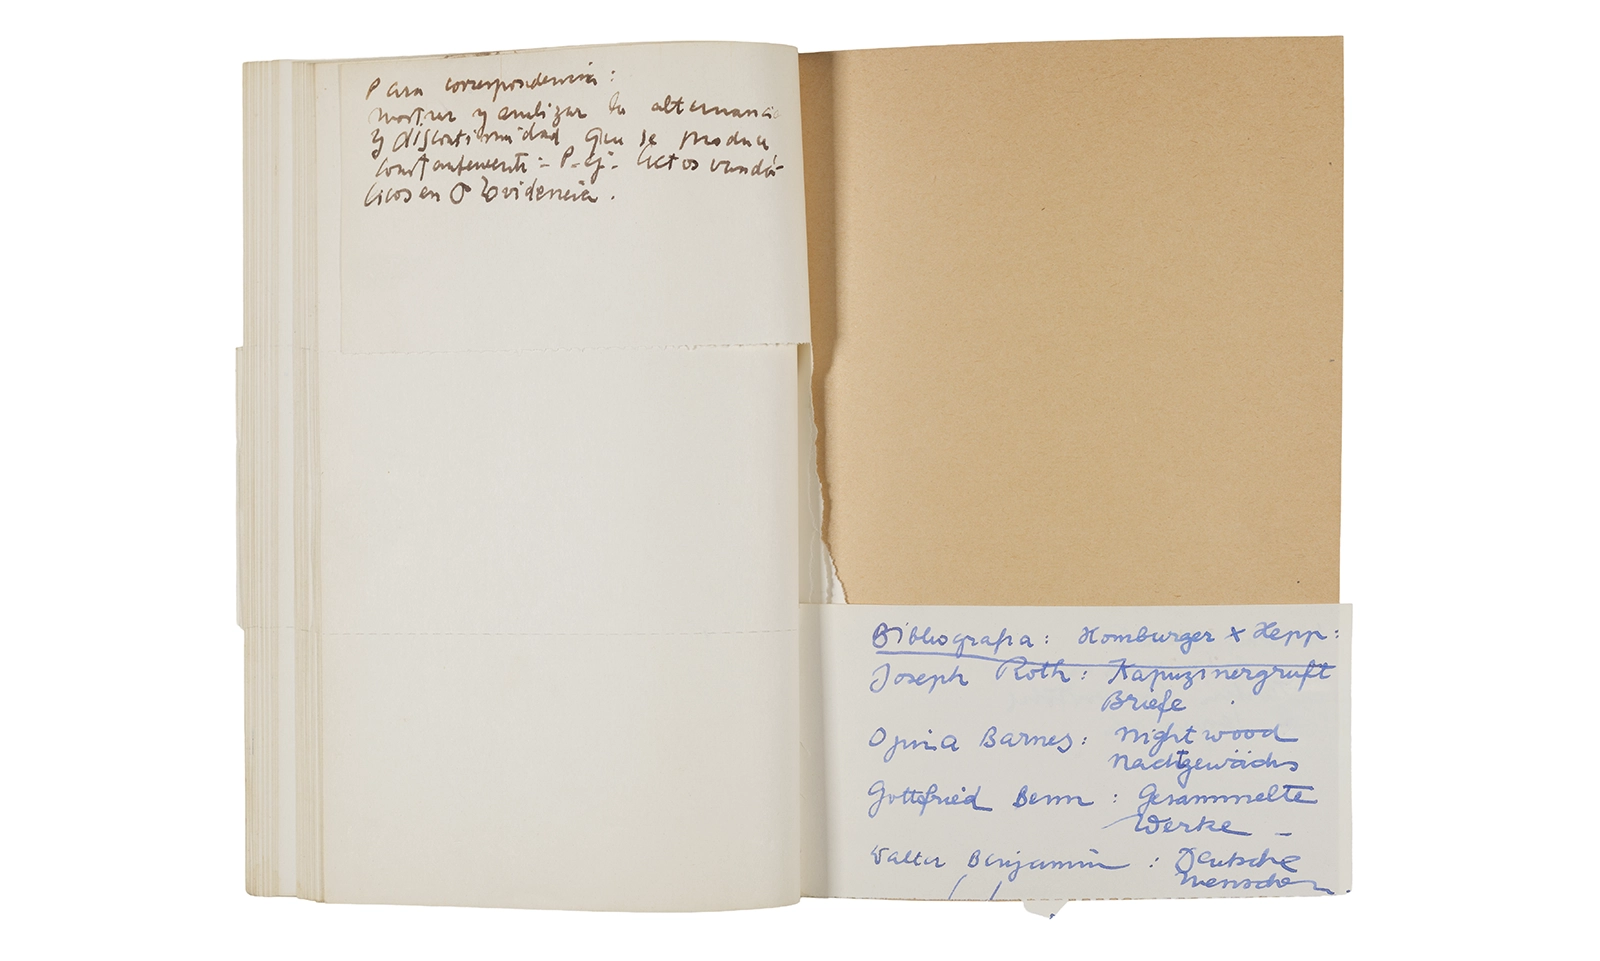 Para correspondencia:
mostrar y analizar la alternancia
y discontinuidad que se produce
constantemente - P. ej. Actos vandá-
licos en Providencia.
Bibliografia: Homburger x Hepp:
Joseph Roth: Kapuzinergruft
Briefe
Djuna Barnes: Nightwood
Nachtgewächs
Gottfried Benn: Gesammelte
Werke -
Walter Benjamin: Deutsche
Menschen